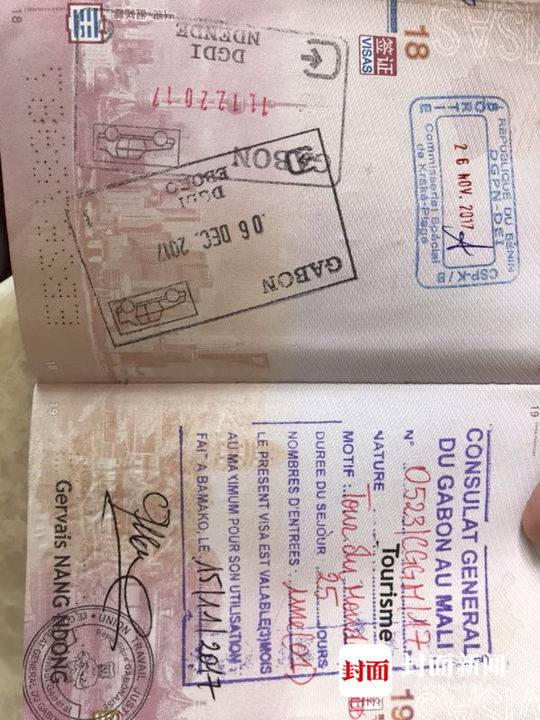 18
签证
VISAS
REPUBLIQUE DU BENIN
DGPN-DEI
26 NOV. 2017
Commissariat Spécial
de Kraké-Plage
SORTIE
CSP-K/B
DGDI
NDENDE
11.12.2017
GABON
DGDI
EBORO
06 DEC. 2017
GABON
18
18
19
19
CONSULAT GENERAL
DU GABON AU MALI
N° 0523/CGGM/17
NATURE Tourisme
MOTIF: Tour du monde
DUREE DU SEJOUR 25 JOURS
NOMBRES D'ENTREES: une (01)
LE PRESENT VISA EST VALABLE(3)MOIS
AU MAXIMUM POUR SON UTILISATION
FAIT A BAMAKO, LE 15/11/2017
Gervais NANG NDONG
UNION TRAVAIL JUSTICE
19
封面
封面新闻